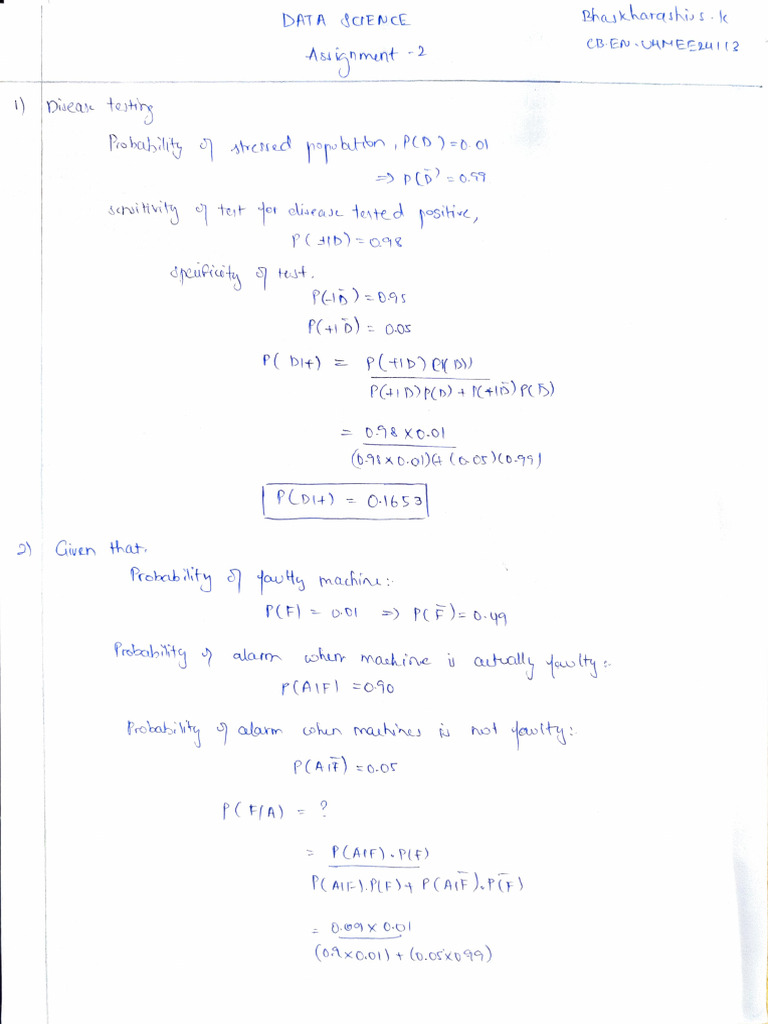 DATA SCIENCE
Bhaskharashius.K
Assignment -2
CB.EN.U4MEE24113
1) Disease testing
Probability of stressed population, P(D)=0.01
=> P(D̄)=0.99
sensitivity of test for disease tested positive,
P(+|D)=0.98
specificity of test.
P(-|D̄)=0.95
P(+|D̄)= 0.05
P(D|+) = P(+|D) P(D))
P(+|D)P(D)+P(+|D̄)P(D̄)
= 0.98 x 0.01
(0.98 x 0.01)+(0.05)(0.99)
P(D|+) = 0.1653
2) Given that.
Probability of faulty machine:-
P(F) = 0.01 => P(F̄)= 0.49
Probability of alarm when machine is actually faulty:-
P(A|F) =0.90
Probability of alarm when machines is not faulty:-
P(A|F̄)=0.05
P(F/A) = ?
= P(A|F).P(F)
P(A|F).P(F)+ P(A|F̄).P(F̄)
= 0.09 x 0.01
(0.9x0.01) + (0.05x099)